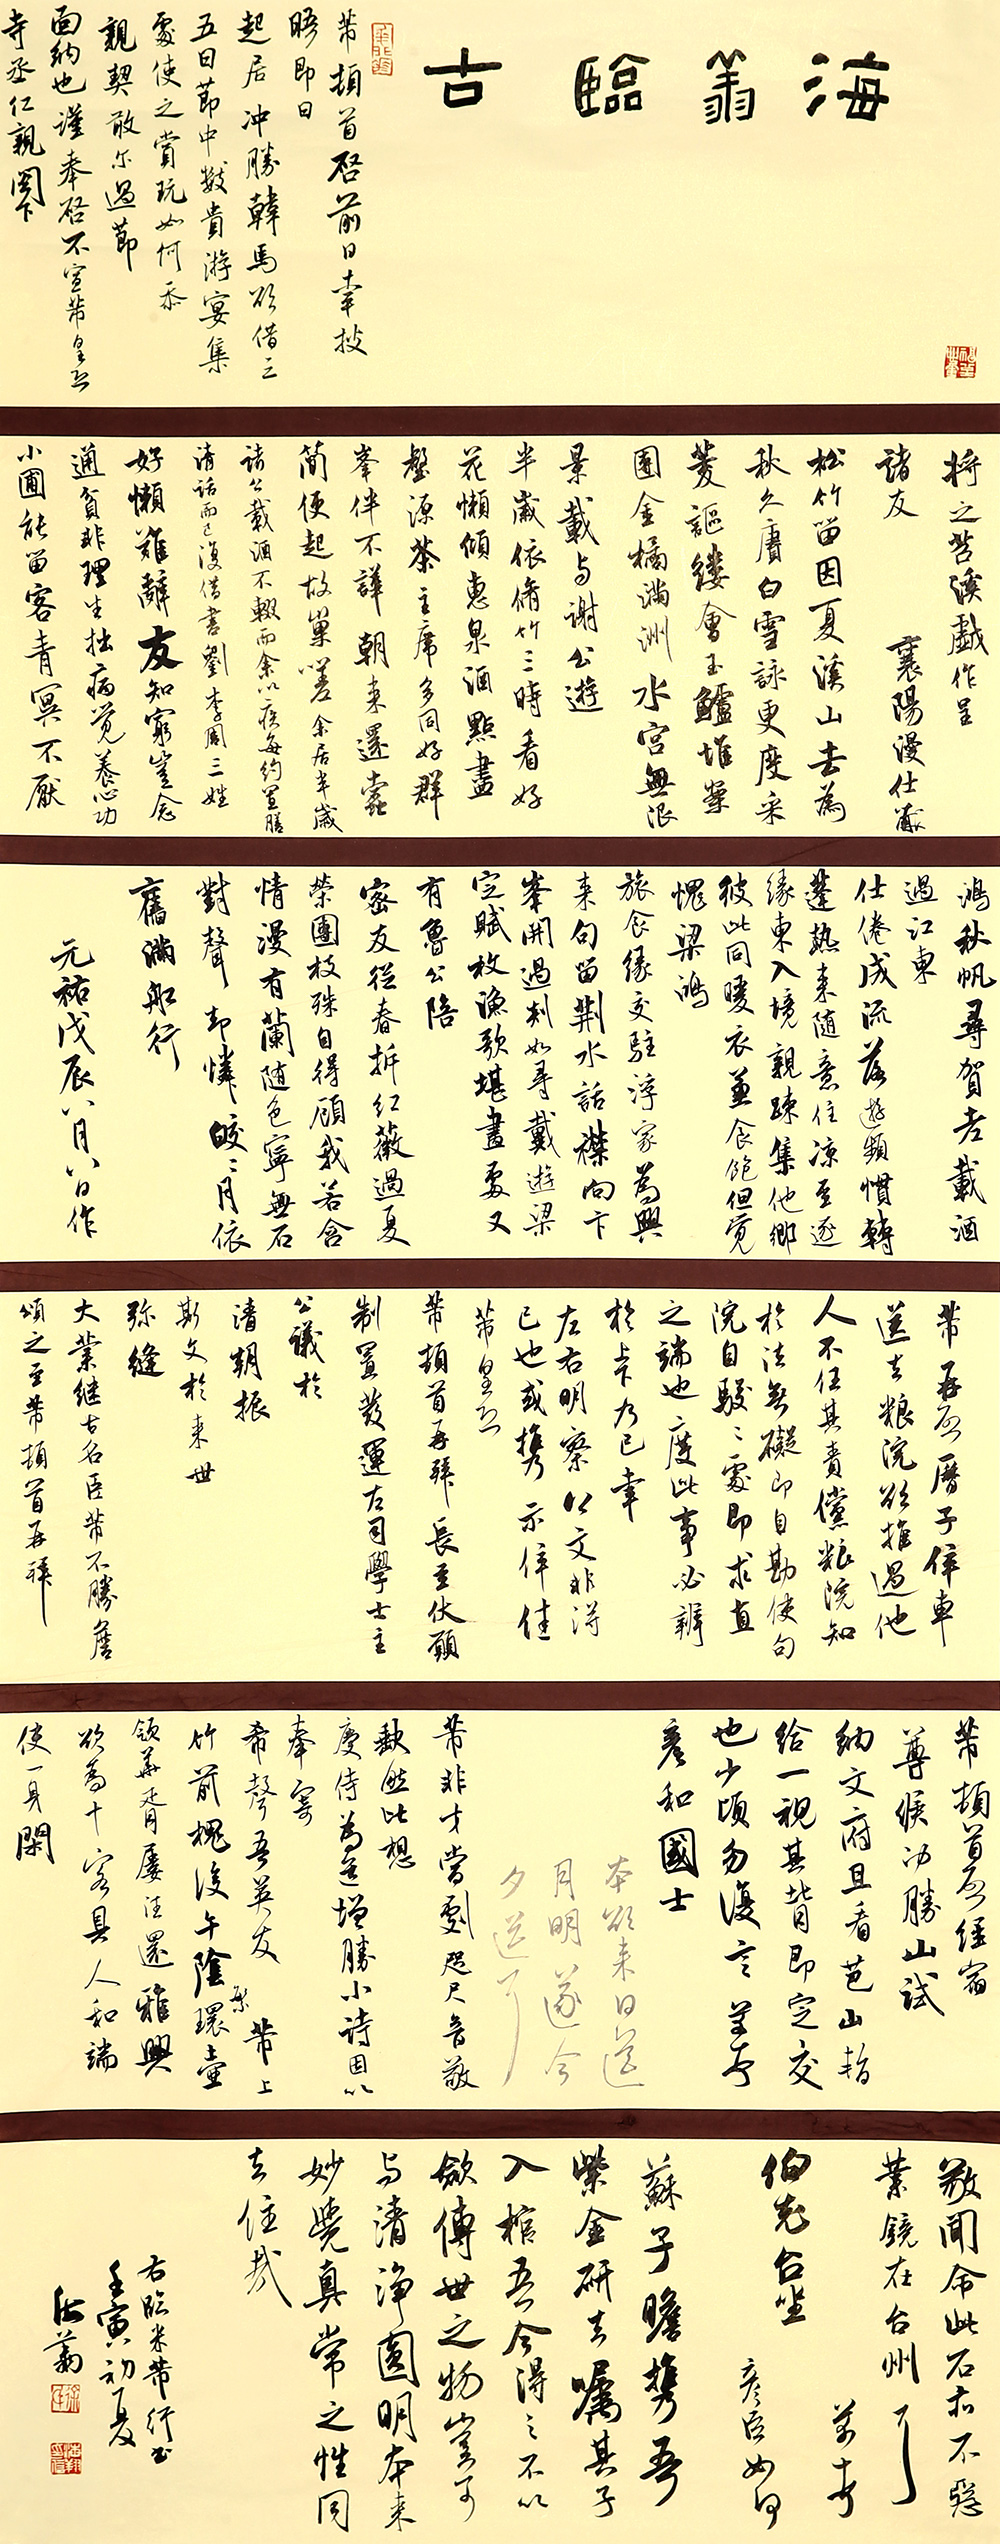 海翁臨古
芾頓首啓前日幸披
晤即日
起居冲勝韓馬欲借三
五日節中數貴游宴集
處使之賞玩如何忝
親契敢尔過節
面納也謹奉啓不宣芾皇恐
寺丞仁親閣下
將之苕溪戲作呈
諸友 襄陽漫仕黻
松竹留因夏溪山去為
秋久賡白雪詠更度采
菱謳縷會玉鱸堆案
團金橘滿洲水宮無限
景載与謝公遊
半歲依脩竹三時看好
花懶傾惠泉酒點盡
壑源茶主席多同好群
峯伴不譁朝来還蠹
簡便起故巢嗟余居半歲
諸公載酒不輟而余以疾每約置膳
清話而已復借書劉李周三姓
好懶難辭友知窮豈念
通貧非理生拙病覺養心功
小圃能留客青冥不厭
鴻秋帆尋賀老載酒
過江東
仕倦成流落遊頻慣轉
蓬熱来随意住凉至逐
緣東入境親疎集他鄉
彼此同暖衣並食飽但覺
愧梁鴻
旅食緣交駐浮家為興
来句留荆水話襟向卞
峯開過剡如尋戴遊梁
定賦枚漁歌堪畫處又
有魯公陪
密友從春拆紅薇過夏
榮團枝殊自得顧我若含
情漫有蘭随色寧無石
對聲却憐皎皎月依
舊滿舡行
元祐戊辰八月八日作
芾再啓曆子倅車
送去粮浣欲推過他
人不任其責儻粮浣知
於法無礙即自勘使句
浣自駮駮處即求直
之端也度此事必辨
於上下乃已幸
左右明察以文非得
已也或擕示倅佳
芾皇恐
芾頓首再拜長至伏願
制置發運左司學士主
公議於
清朝振
斯文於来世
弥縫
大業継古名臣芾不勝詹
頌之至芾頓首再拜
芾頓首啓經宿
尊候冲勝山試
納文府且看芭山轄
給一視其背即定交
也少頃勿復言芾頓首
彦和國士
本欲来日送
月明遂今
夕送了
芾非才當劇咫尺音敬
缺然比想
慶侍為道增勝小詩因以
奉寄
希聲吾英友 芾上
竹前槐後午陰繁環壺
領華胥屢汪還雅興
欲為十客具人和端
使一身閑
敬聞命此石亦不惡
業鏡在台州了
芾頓首
伯充台坐
彦臣如何
蘇子瞻擕吾
紫金研去嘱其子
入棺吾今得之不以
歛傳世之物豈可
与清淨圓明本来
妙覺真常之性同
去住哉
右臨米芾行書
壬寅初夏
海翁